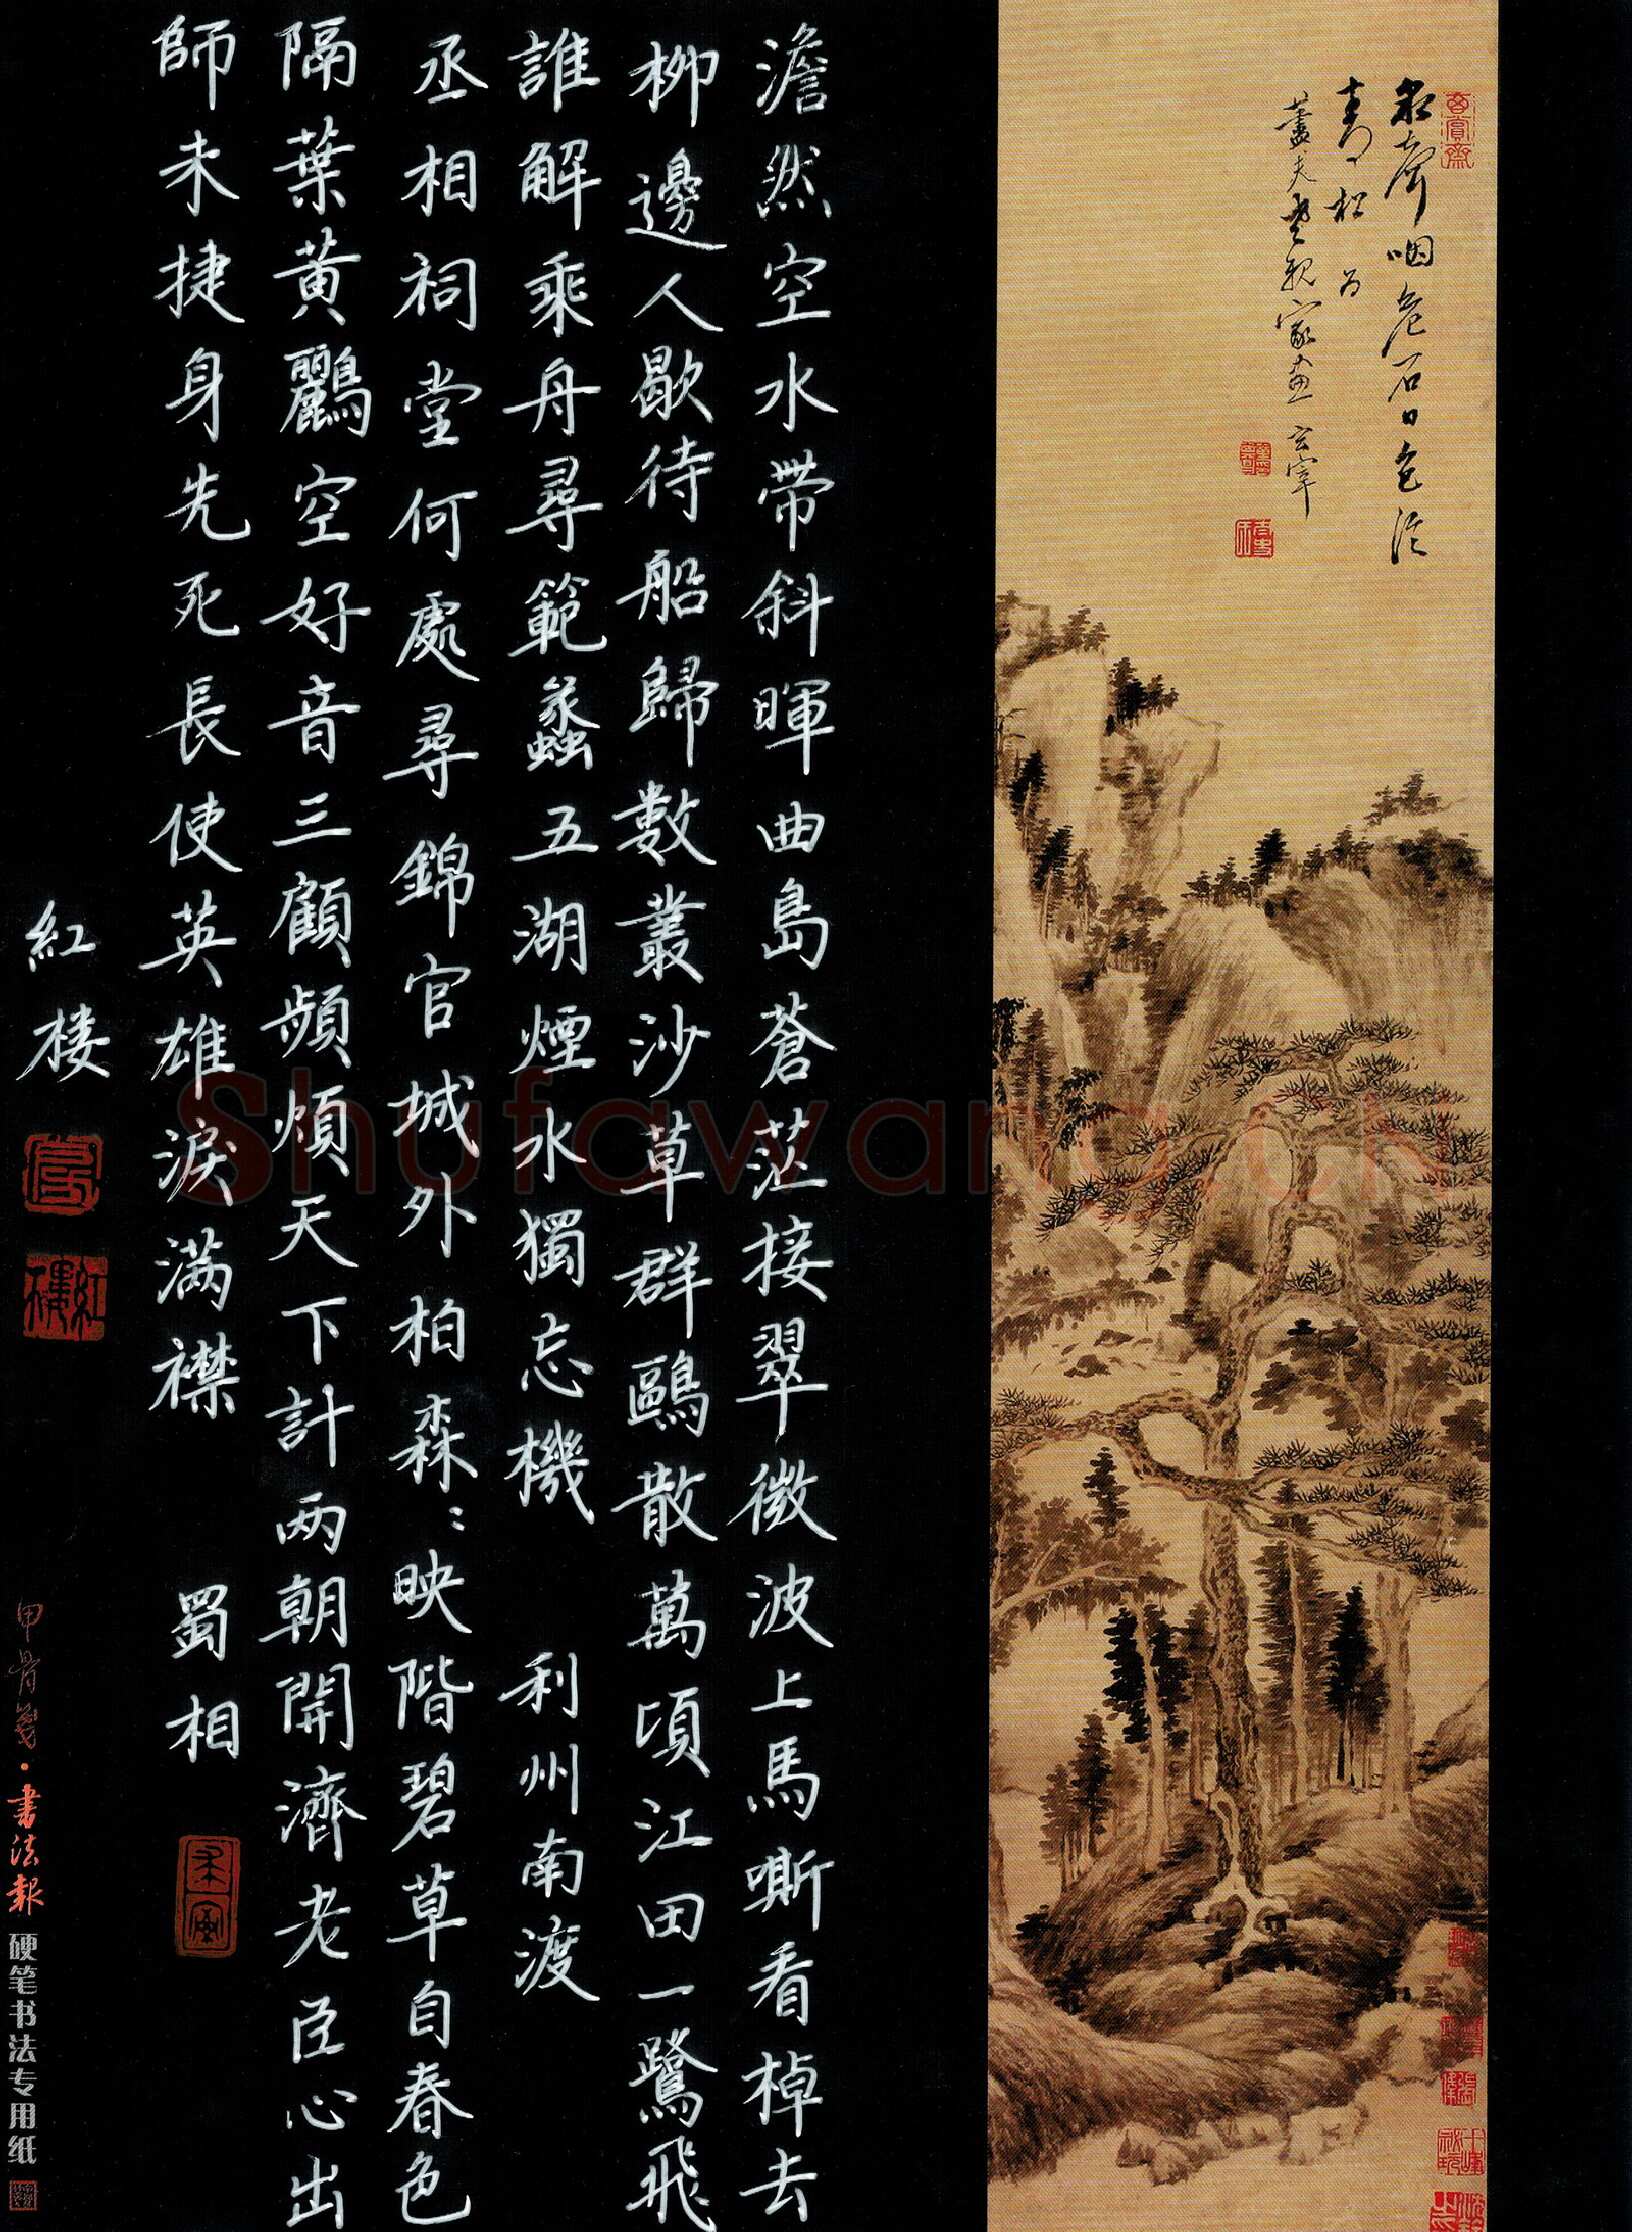 泉聲咽危石日色冷
青松 为
夫老親家畫 玄宰
澹然空水帶斜暉曲島蒼茫接翠微波上馬嘶看棹去
柳邊人歇待船歸數叢沙草群鷗散萬頃江田一鷺飛
誰解乘舟尋範蠡五湖煙水獨忘機 利州南渡
丞相祠堂何處尋錦官城外柏森〻映階碧草自春色
隔葉黃鸝空好音三顧頻煩天下計两朝開濟老臣心出
師未捷身先死長使英雄淚满襟 蜀相
紅楼
紅樓
甲骨箋·書法報 硬笔书法专用纸
Shufawang.cn